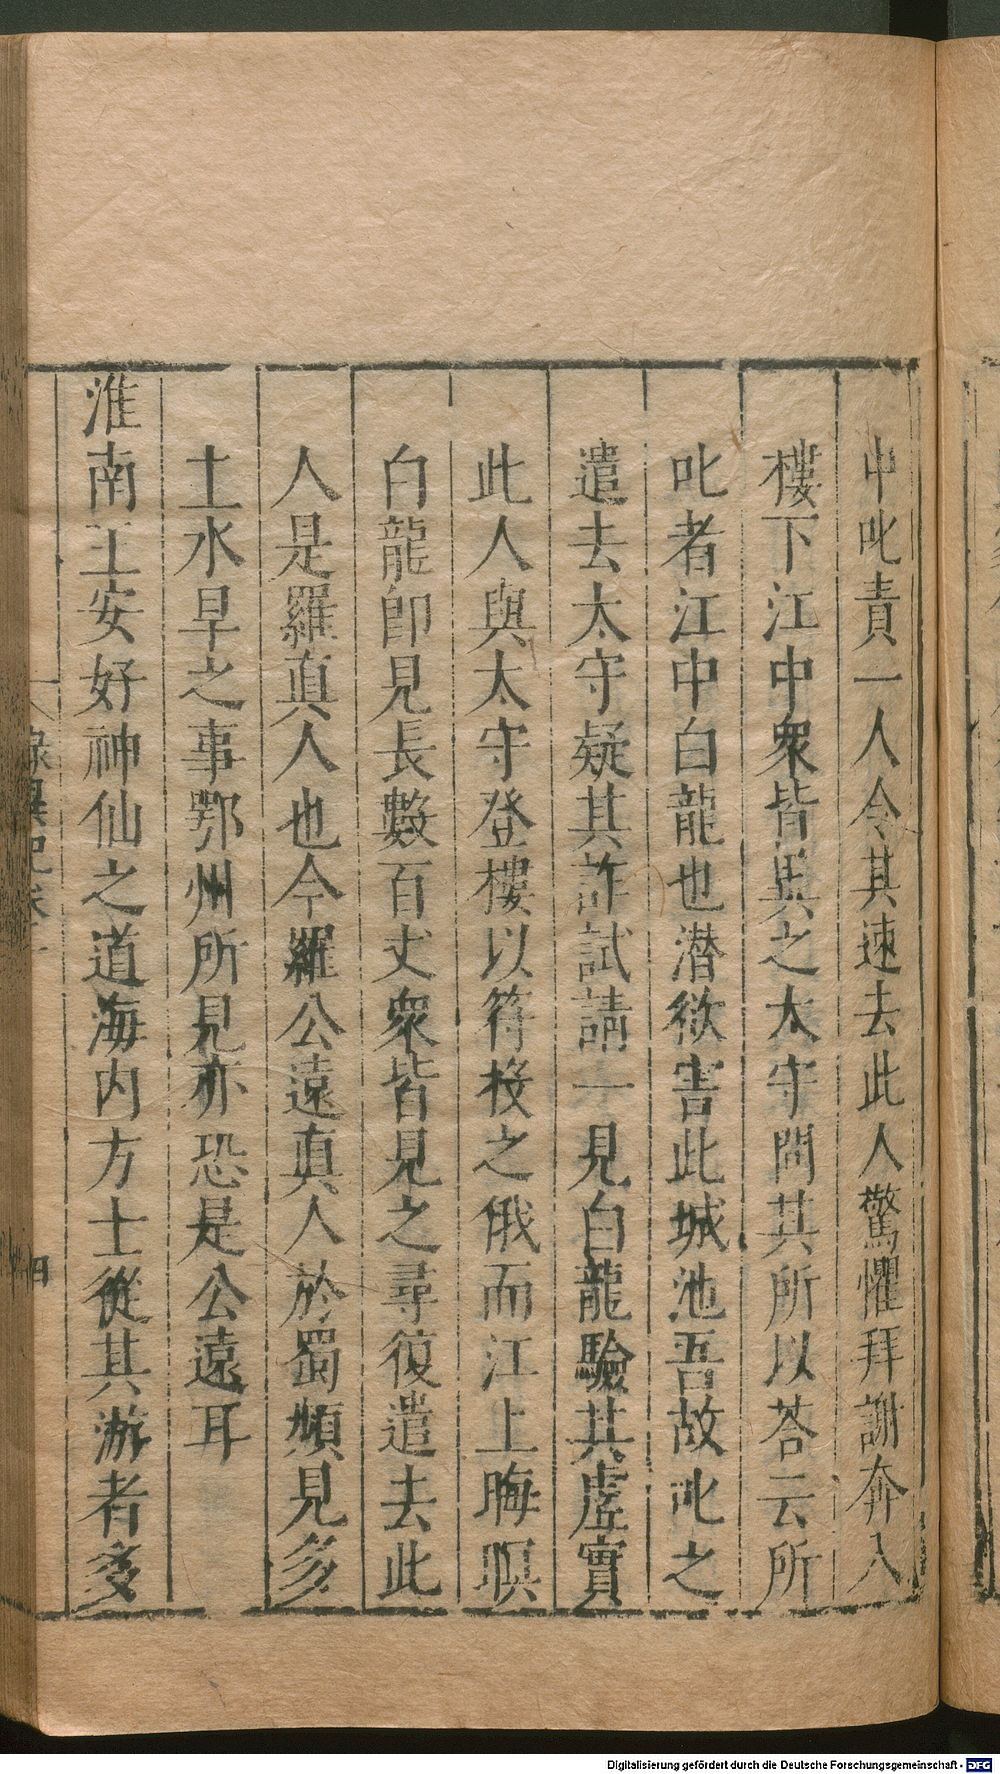 中叱責一人令其速去此人驚懼拜謝奔入
樓下江中衆皆異之太守問其所以荅云所
叱者江中白龍也潜欲害此城池吾故叱之
遣去太守疑其詐試請一見白龍驗其虗實
此人與太守登樓以符投之俄而江上晦暝
白龍即見長數百丈衆皆見之尋復遣去此
人是羅真人也今羅公遠真人於蜀頻見多
土水旱之事鄂州所見亦恐是公遠耳
淮南王安好神仙之道海内方士從其游者多
錄異記卷一
四
Digitalisierung gefördert durch die Deutsche Forschungsgemeinschaft - DFG